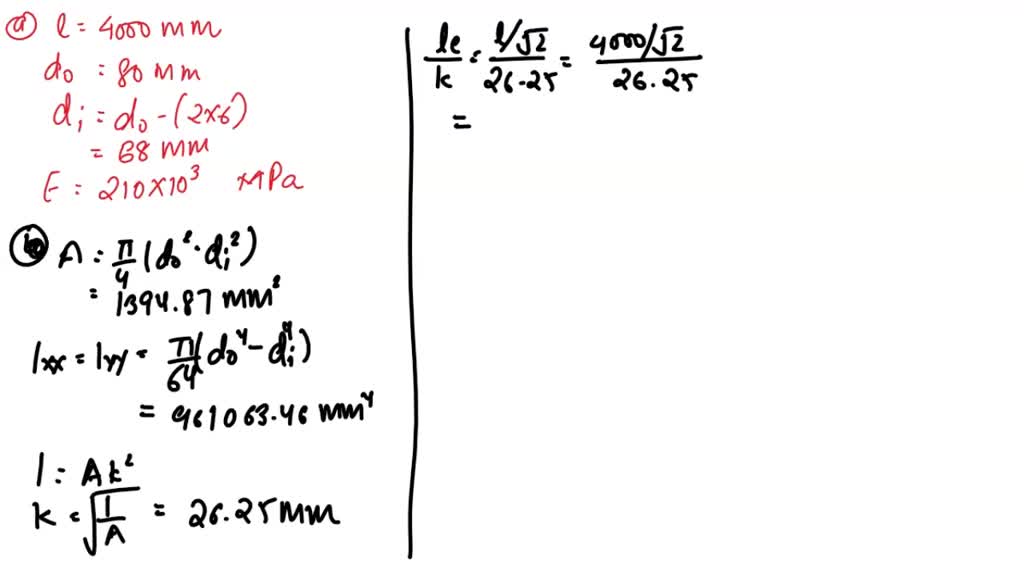 ⓐ l = 4000 mm
do = 80 mm
di = do - (2×6)
= 68 mm
E = 210×10³ MPa
ⓑ A = π/4 (do² - di²)
= 1394.87 mm²
Ixx = Iyy = π/64 (do⁴ - di⁴)
= 961063.46 mm⁴
I = Ak²
k = √(I/A) = 26.25 mm
le/k = l/√2 / 26.25 = 4000/√2 / 26.25
=